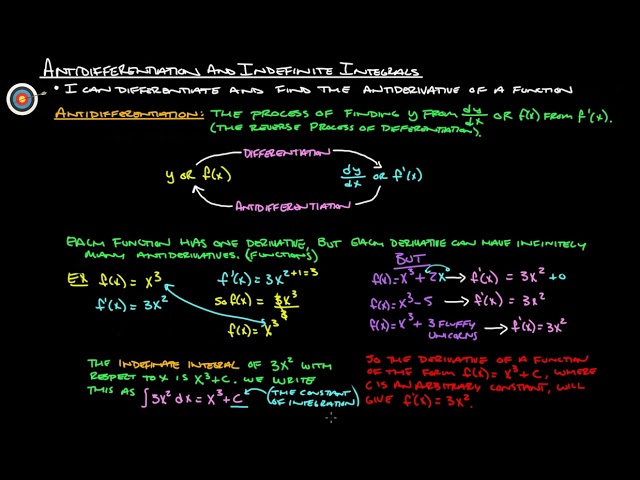 ANTIDIFFERENTIATION AND INDEFINITE INTEGRALS
• I CAN DIFFERENTIATE AND FIND THE ANTIDERIVATIVE OF A FUNCTION
ANTIDIFFERENTIATION: THE PROCESS OF FINDING y FROM dy/dx OR f(x) FROM f'(x).
(THE REVERSE PROCESS OF DIFFERENTIATION).
DIFFERENTIATION
y OR f(x) dy/dx OR f'(x)
ANTIDIFFERENTIATION
EACH FUNCTION HAS ONE DERIVATIVE, BUT EACH DERIVATIVE CAN HAVE INFINITELY
MANY ANTIDERIVATIVES. (FUNCTIONS)
BUT
EX f(x) = x³
f'(x) = 3x²
f'(x) = 3x² +1=3
so f(x) = 3x³/3
f(x) = x³
f(x) = x³ + 2x⁰ → f'(x) = 3x² + 0
f(x) = x³ - 5 → f'(x) = 3x²
f(x) = x³ + 3 FLUFFY UNICORNS → f'(x) = 3x²
THE INDEFINATE INTEGRAL OF 3x² WITH
RESPECT TO X IS x³ + C. WE WRITE
THIS AS ∫3x² dx = x³ + C (THE CONSTANT
OF INTEGRATION)
SO THE DERIVATIVE OF A FUNCTION
OF THE FORM f(x) = x³ + C, WHERE
C IS AN ARBITRARY CONSTANT, WILL
GIVE f'(x) = 3x².